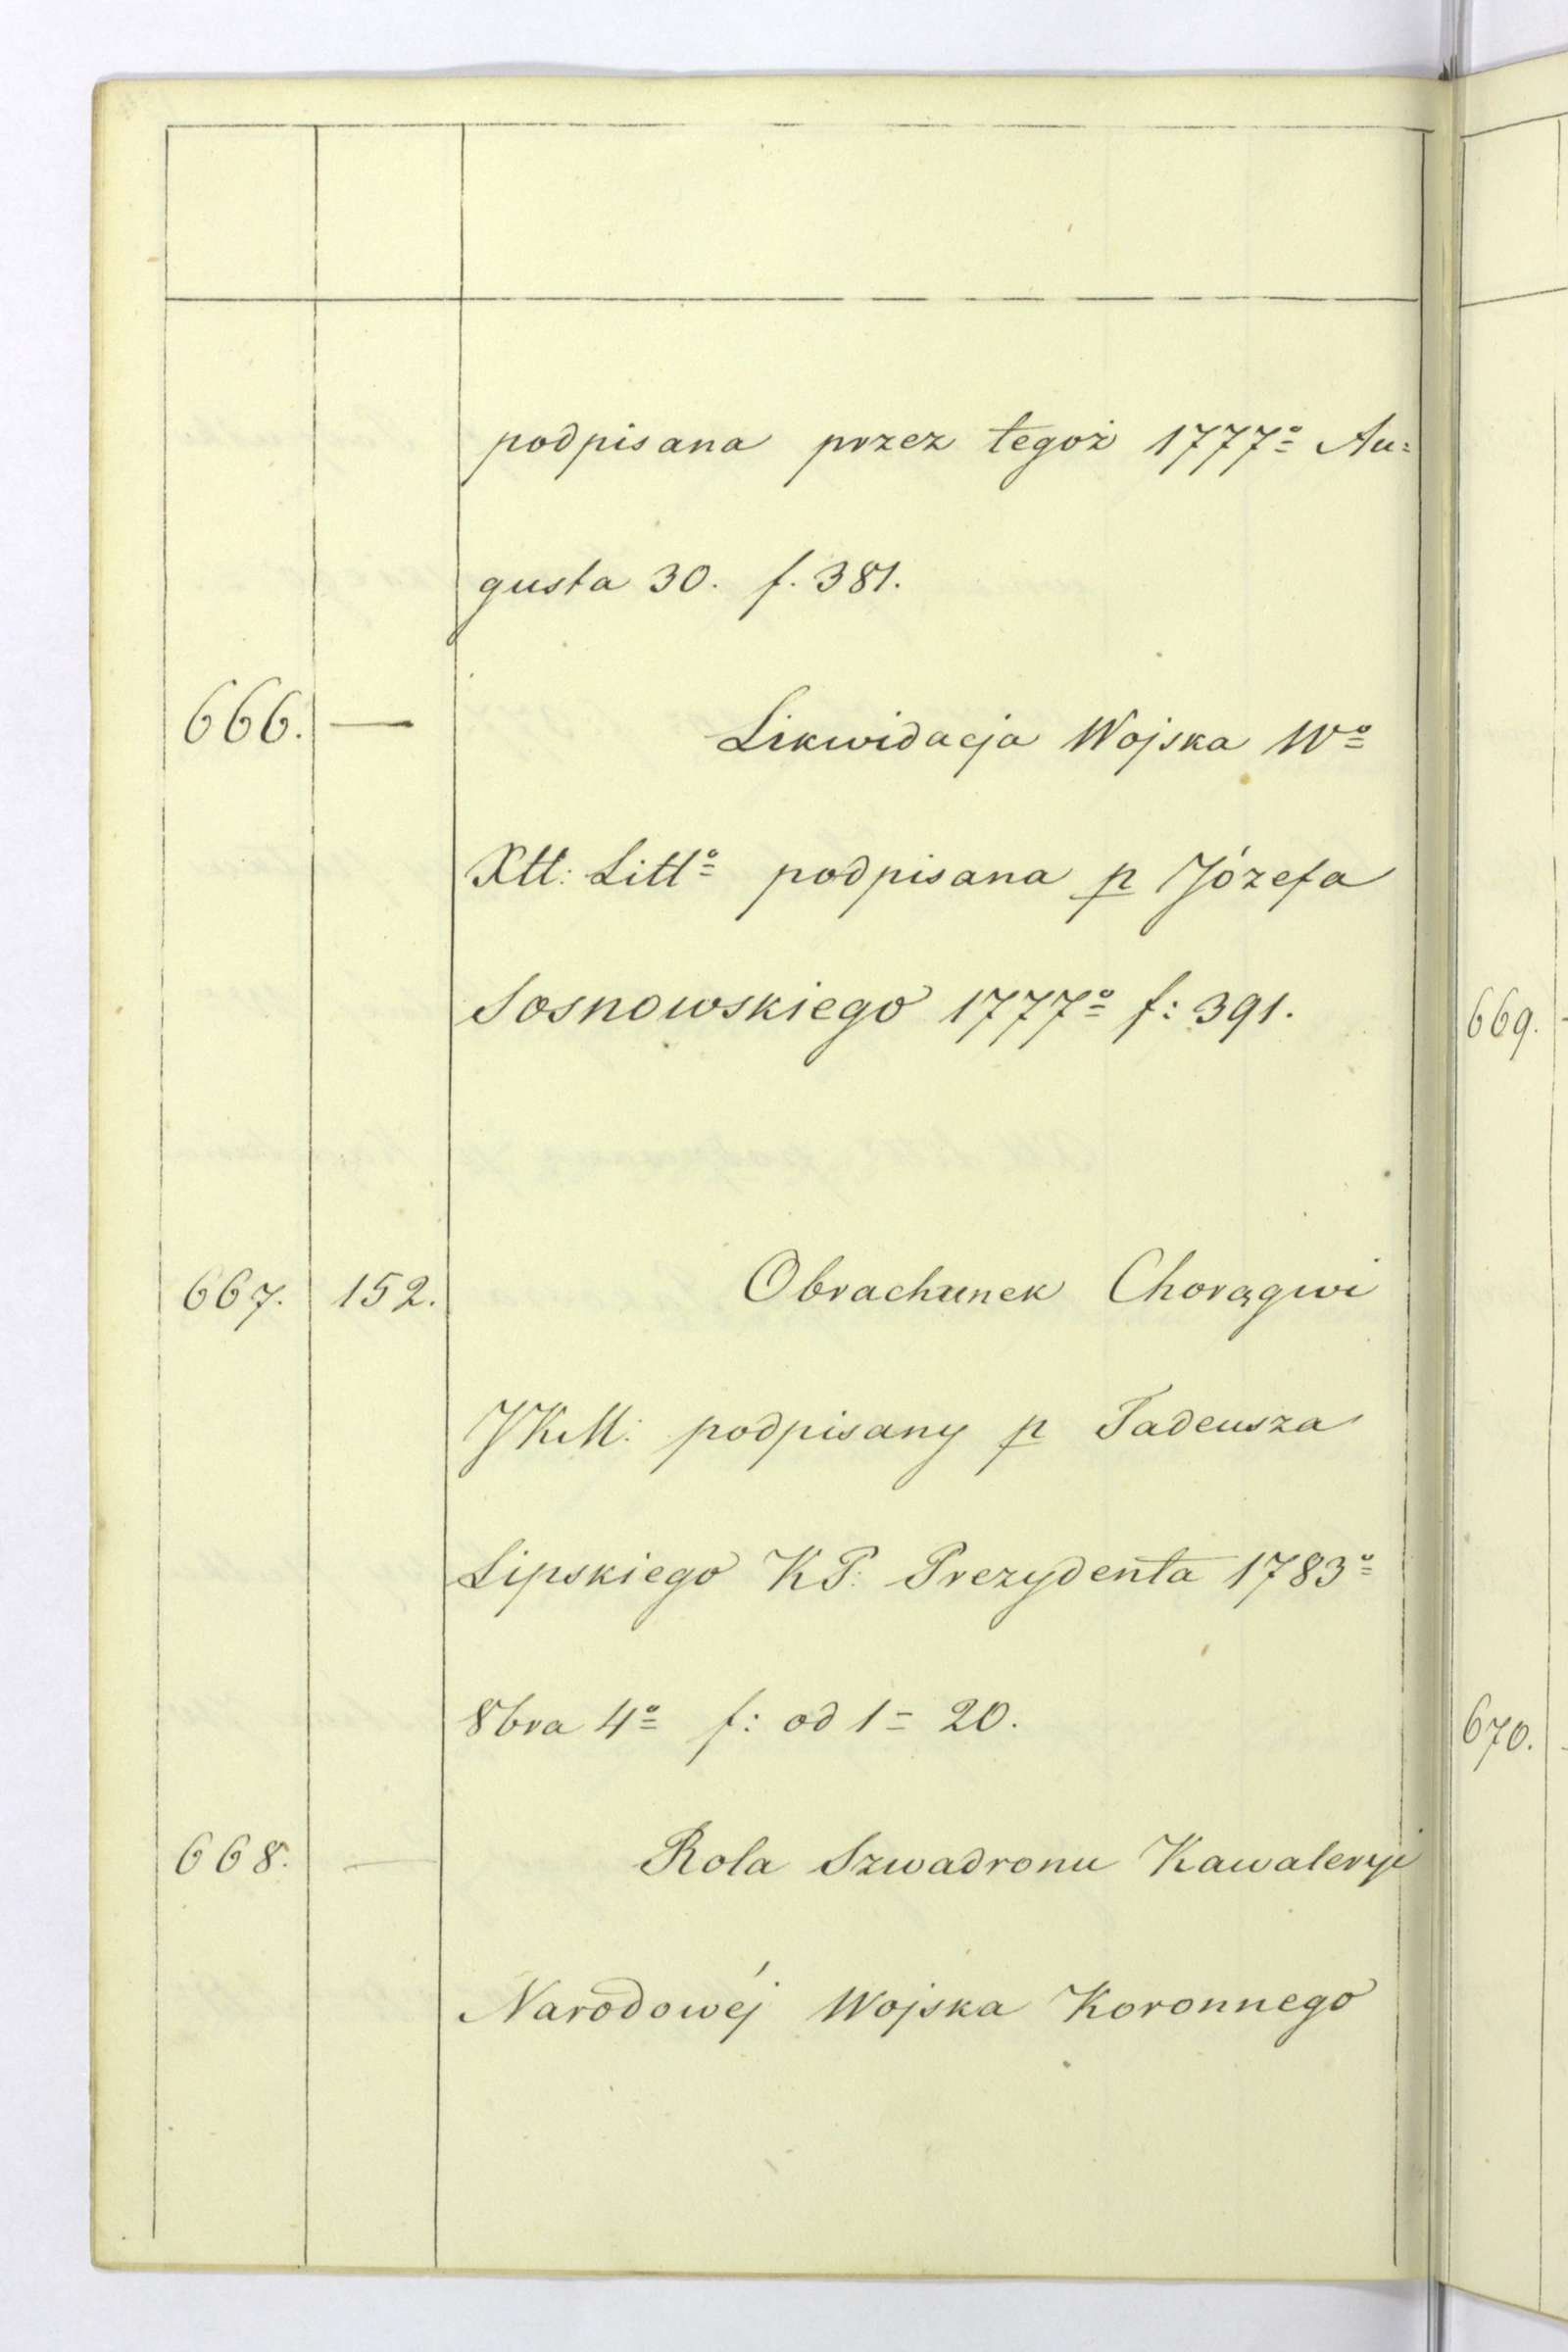 podpisana przez tegoż 1777º Au=
gusta 30. f. 381.
666. — Likwidacja Wojska Wº
Xtt: Littº podpisana p Józefa
Sosnowskiego 1777º f: 391.
667. 152. Obrachunek Chorągwi
JKM: podpisany p Tadeusza
Lipskiego KP: Prezydenta 1783º
8bra 4º f: od 1= 20.
668. — Rola Szwadronu Kawaleryi
Narodowéj Wojska Koronnego
669.
670.